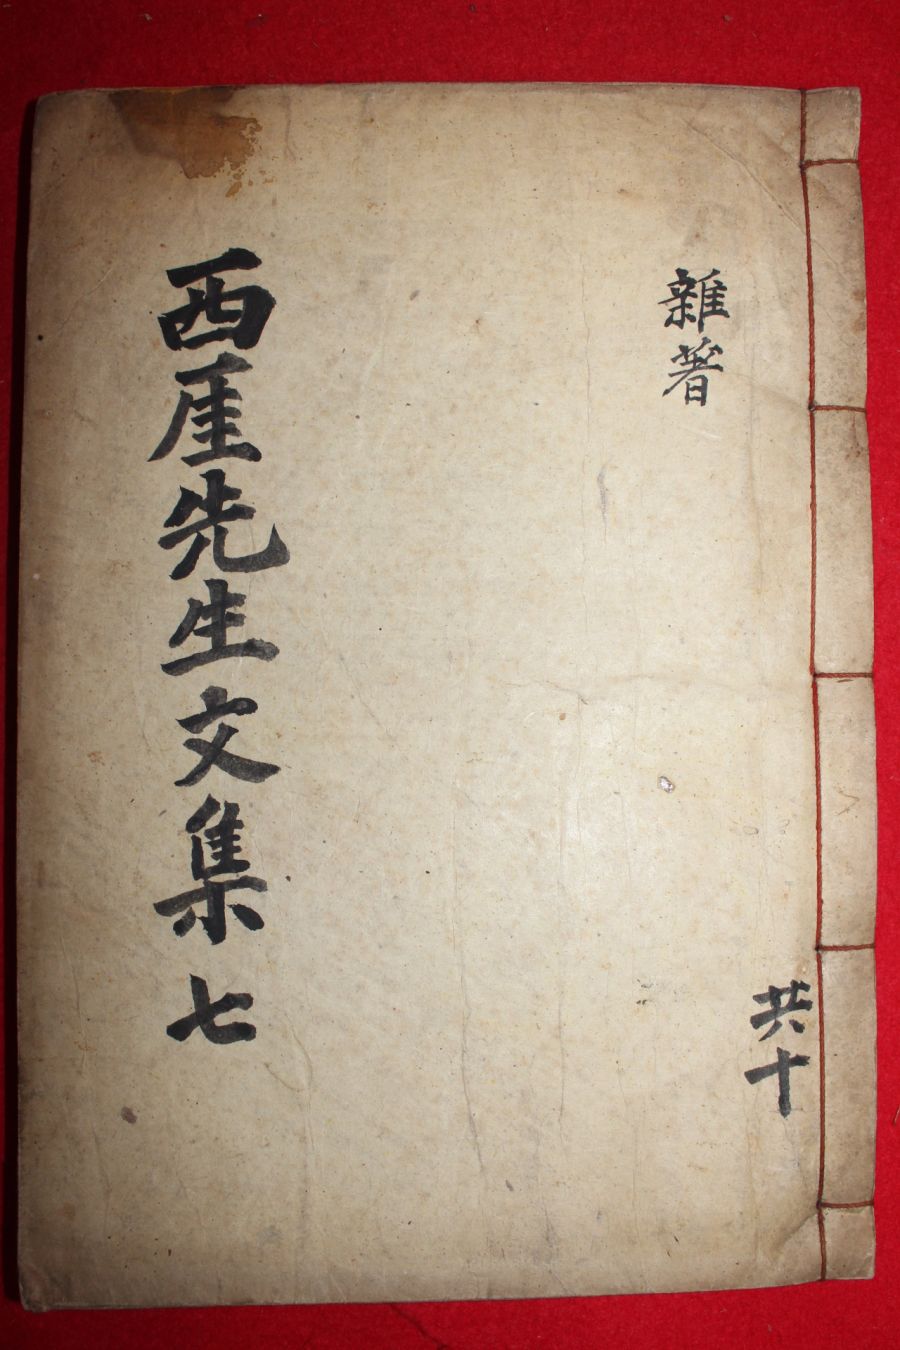 雜著
共十
西厓先生文集 七